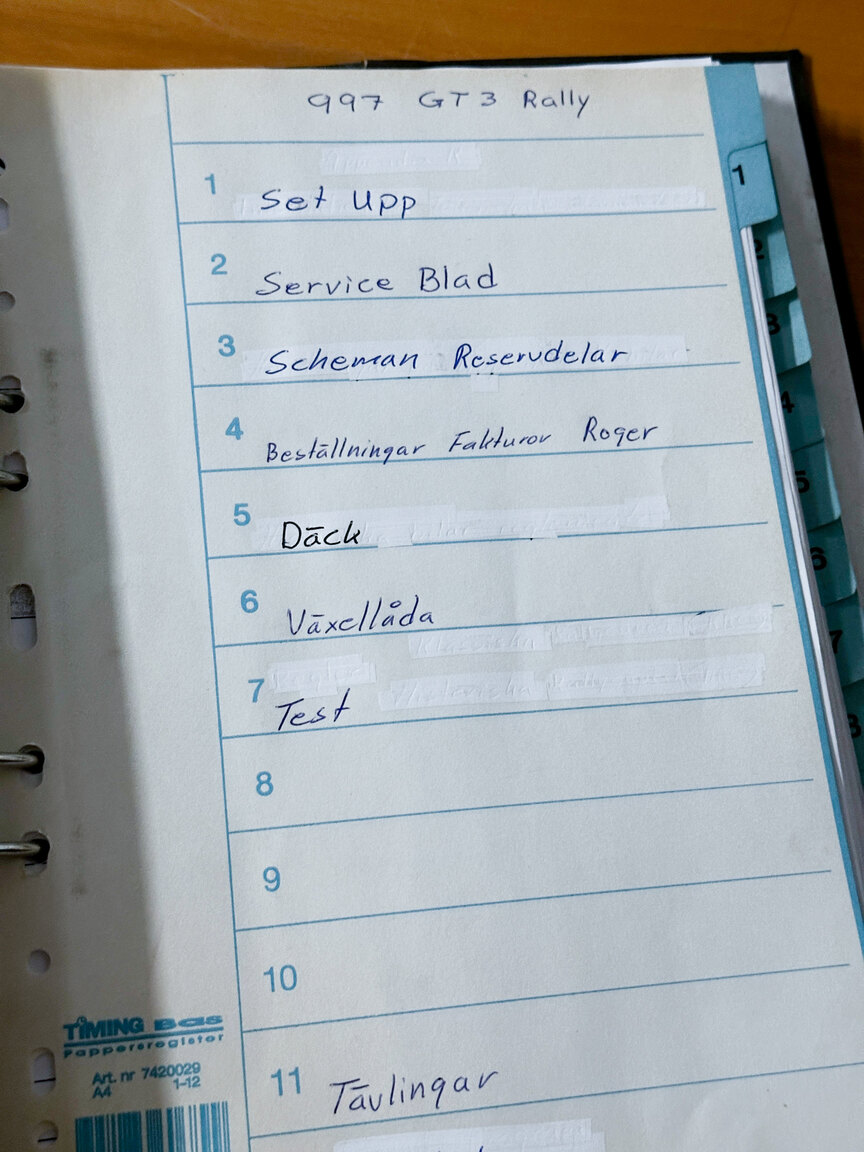 997 GT3 Rally
1 Set Upp
1
2 Service Blad
2
3 Scheman Reservdelar
3
4 Beställningar Fakturor Roger
4
5 Däck
5
6 Växellåda
6
7 Test
7
8
8
9
10
11 Tävlingar
TIMING Bas
Pappersregister
Art. nr 7420029
A4 1-12